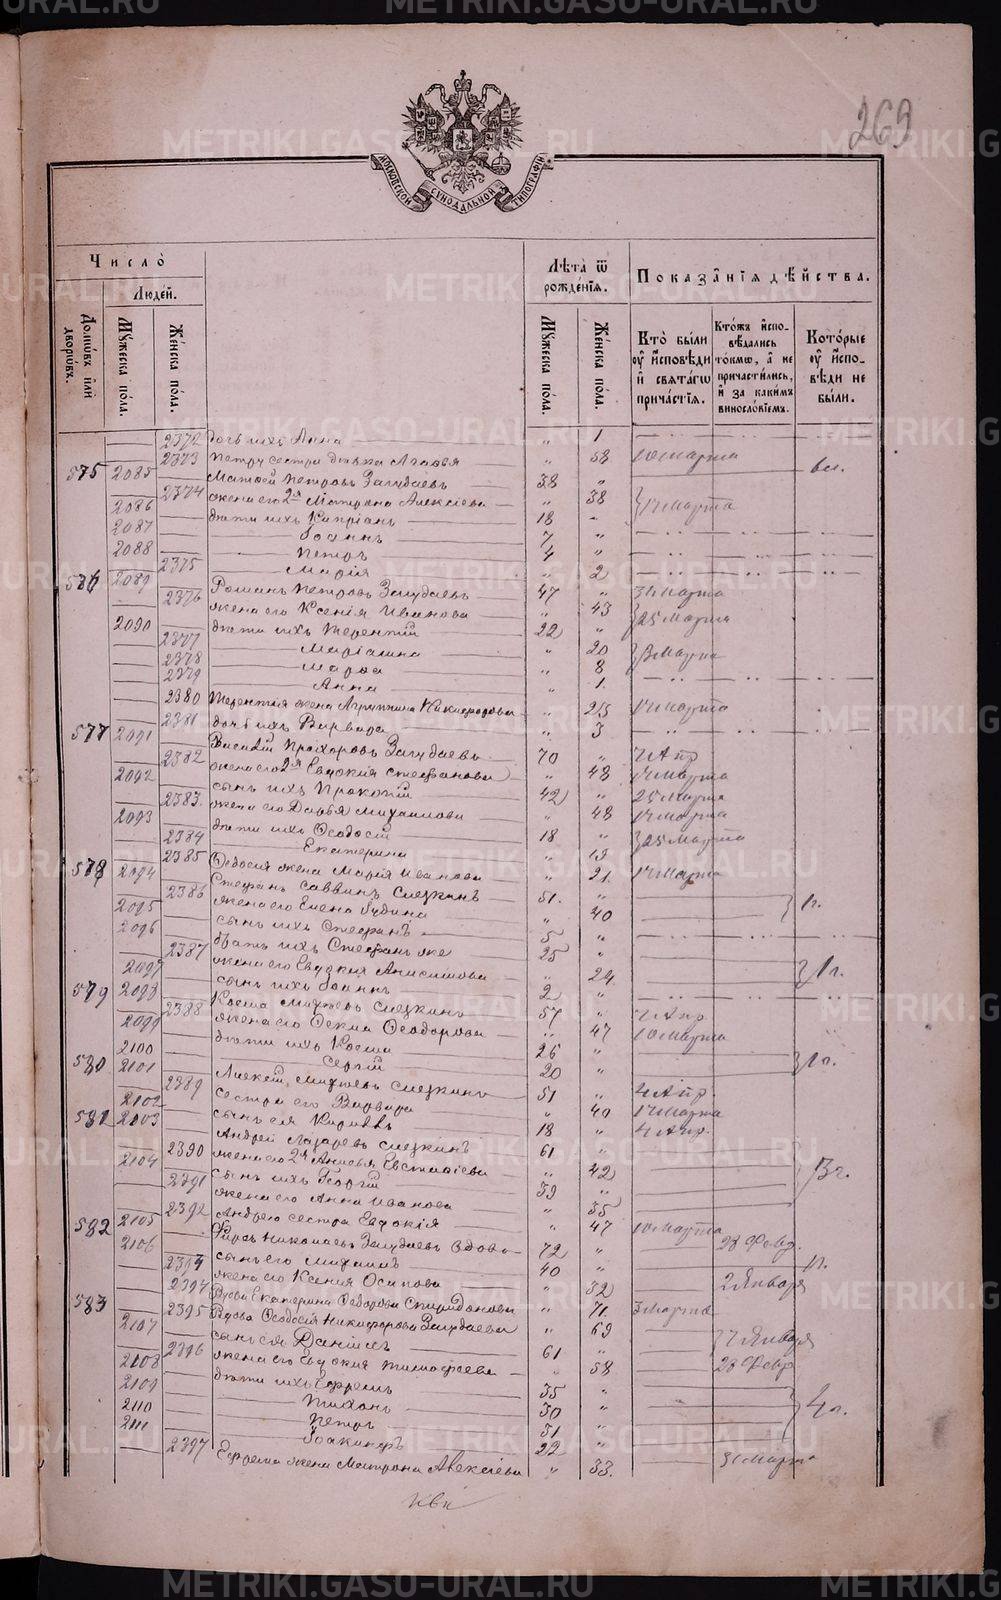 269
МОСКОВСКОЙ СѴНОДАЛЬНОЙ ТИПОГРАФІИ
Число̀
Людей.
Домѡвъ илѝ дворѡвъ.
Мꙋжеска по́ла.
Же́нска по́ла.
Лѣ́та ѿ рожде́нїѧ.
Мꙋжеска по́ла.
Же́нска по́ла.
Показа́нїѧ дѣ́йства.
Кто̀ бы́ли ᲂу҆ и҆сповѣди и҆ свѧта́гѡ прича́стїѧ.
Кто́жъ и҆спо-вѣдались то́кмѡ, а҆ не причасти́лись, и҆ за каки́мъ винослов́їемъ.
Кото́рые ᲂу҆ и҆спо-вѣди не бы́ли.
2372 дочь ихъ Анна " 1
2373 Петру сестра дѣвка Агафья " 58 10 Марта
575 2085 Матѳей Петровъ Загудаевъ 38 " вл.
2374 жена его 2я Матрона Алексіева " 38 14 Марта
2086 дѣти ихъ Кипріанъ 18 "
2087 Іоаннъ 7 "
2088 Петръ 4 "
2375 Марія " 2
576 2089 Романъ Петровъ Загудаевъ 47 " 31 Марта
2376 жена его Ксенія Иванова " 43 25 Марта
2090 дѣти ихъ Терентій 22 "
2377 Маріамна " 20 Марта
2378 Марѳа " 8
2379 Анна " 1.
2380 Терентія жена Агриппина Никифорова " 25 14 Марта
2381 дочь ихъ Варвара " 3
577 2091 Василій Прохоровъ Загудаевъ 70 " 4 Апр
2382 жена его 2я Евдокія Стефанова " 48 14 Марта
2092 сынъ ихъ Прокопій 42 " 25 Марта
2383. жена его Дарья Михаилова " 48 14 Марта
2093 дѣти ихъ Ѳеодосій 18 " 25 Марта
2384 Екатерина " 19
2385 Ѳеодосія жена Марія Иванова " 21. 14 Марта
578 2094 Стефанъ Саввинъ Слезкинъ 51. " 1 г.
2386 жена его Елена Іудина " 40
2095 сынъ ихъ Стефанъ 5 "
2096 братъ ихъ Стефанъ же 25 "
2387 жена его Евдокія Анисимова " 24 1 г.
2097 сынъ ихъ Іоаннъ 2 "
579 2098 Косма Михеевъ Слезкинъ 57 " 4 Апр.
2388 жена его Ѳекла Ѳеодорова " 47 10 Марта
2099 дѣти ихъ Косма 26 "
2100 Сергій 20 " 1 г.
580 2101 Алексій Михеевъ Слезкинъ 51 " 4 Апр.
2389 сестра его Варвара " 40 14 Марта
2102 сынъ ея Кириллъ 18 " 4 Апр.
581 2103 Андрей Лазаревъ Слезкинъ 61 "
2390 жена его 2я Анисья Евстафіева " 42 3 г.
2104 сынъ ихъ Георгій 39 "
2391 жена его Анна Иванова " 35
2392 Андрею сестра Евдокія " 47 10 Марта
582 2105 Николаевъ Загудаевъ вдовъ 72 " 28 Февр.
2106 сынъ его Михаилъ 40 "
жена его Ксенія Осипова " 32 2 Января
583 2394 Вдова Екатерина Ѳедорова Спиридонова " 71. 3 Марта
2395 Вдова Ѳеодосія Никифорова Загудаева " 69
2107 сынъ ея Даніилъ 61 " Января
2396 жена его Евдокія Тимофеева " 58 28 Февр
2108 дѣти ихъ Ефремъ 35 "
2109 Тихонъ 30 " 4 г.
2110 Петръ 31 "
2111 Іоакимъ 22 "
2397 Ефрема жена Матрона Алексіева " 33. 31 Марта